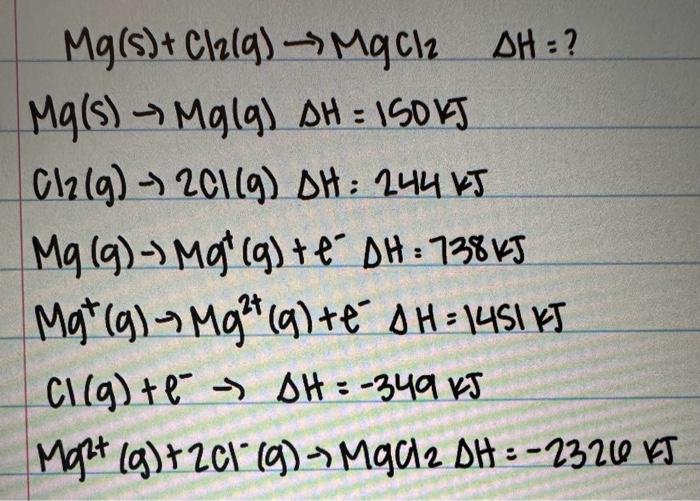 Mg(s) + Cl2(g) → MgCl2 ΔH = ?
Mg(s) → Mg(g) ΔH = 150 kJ
Cl2(g) → 2Cl(g) ΔH = 244 kJ
Mg(g) → Mg⁺(g) + e⁻ ΔH = 738 kJ
Mg⁺(g) → Mg²⁺(g) + e⁻ ΔH = 1451 kJ
Cl(g) + e⁻ → ΔH = -349 kJ
Mg²⁺(g) + 2Cl⁻(g) → MgCl2 ΔH = -2326 kJ